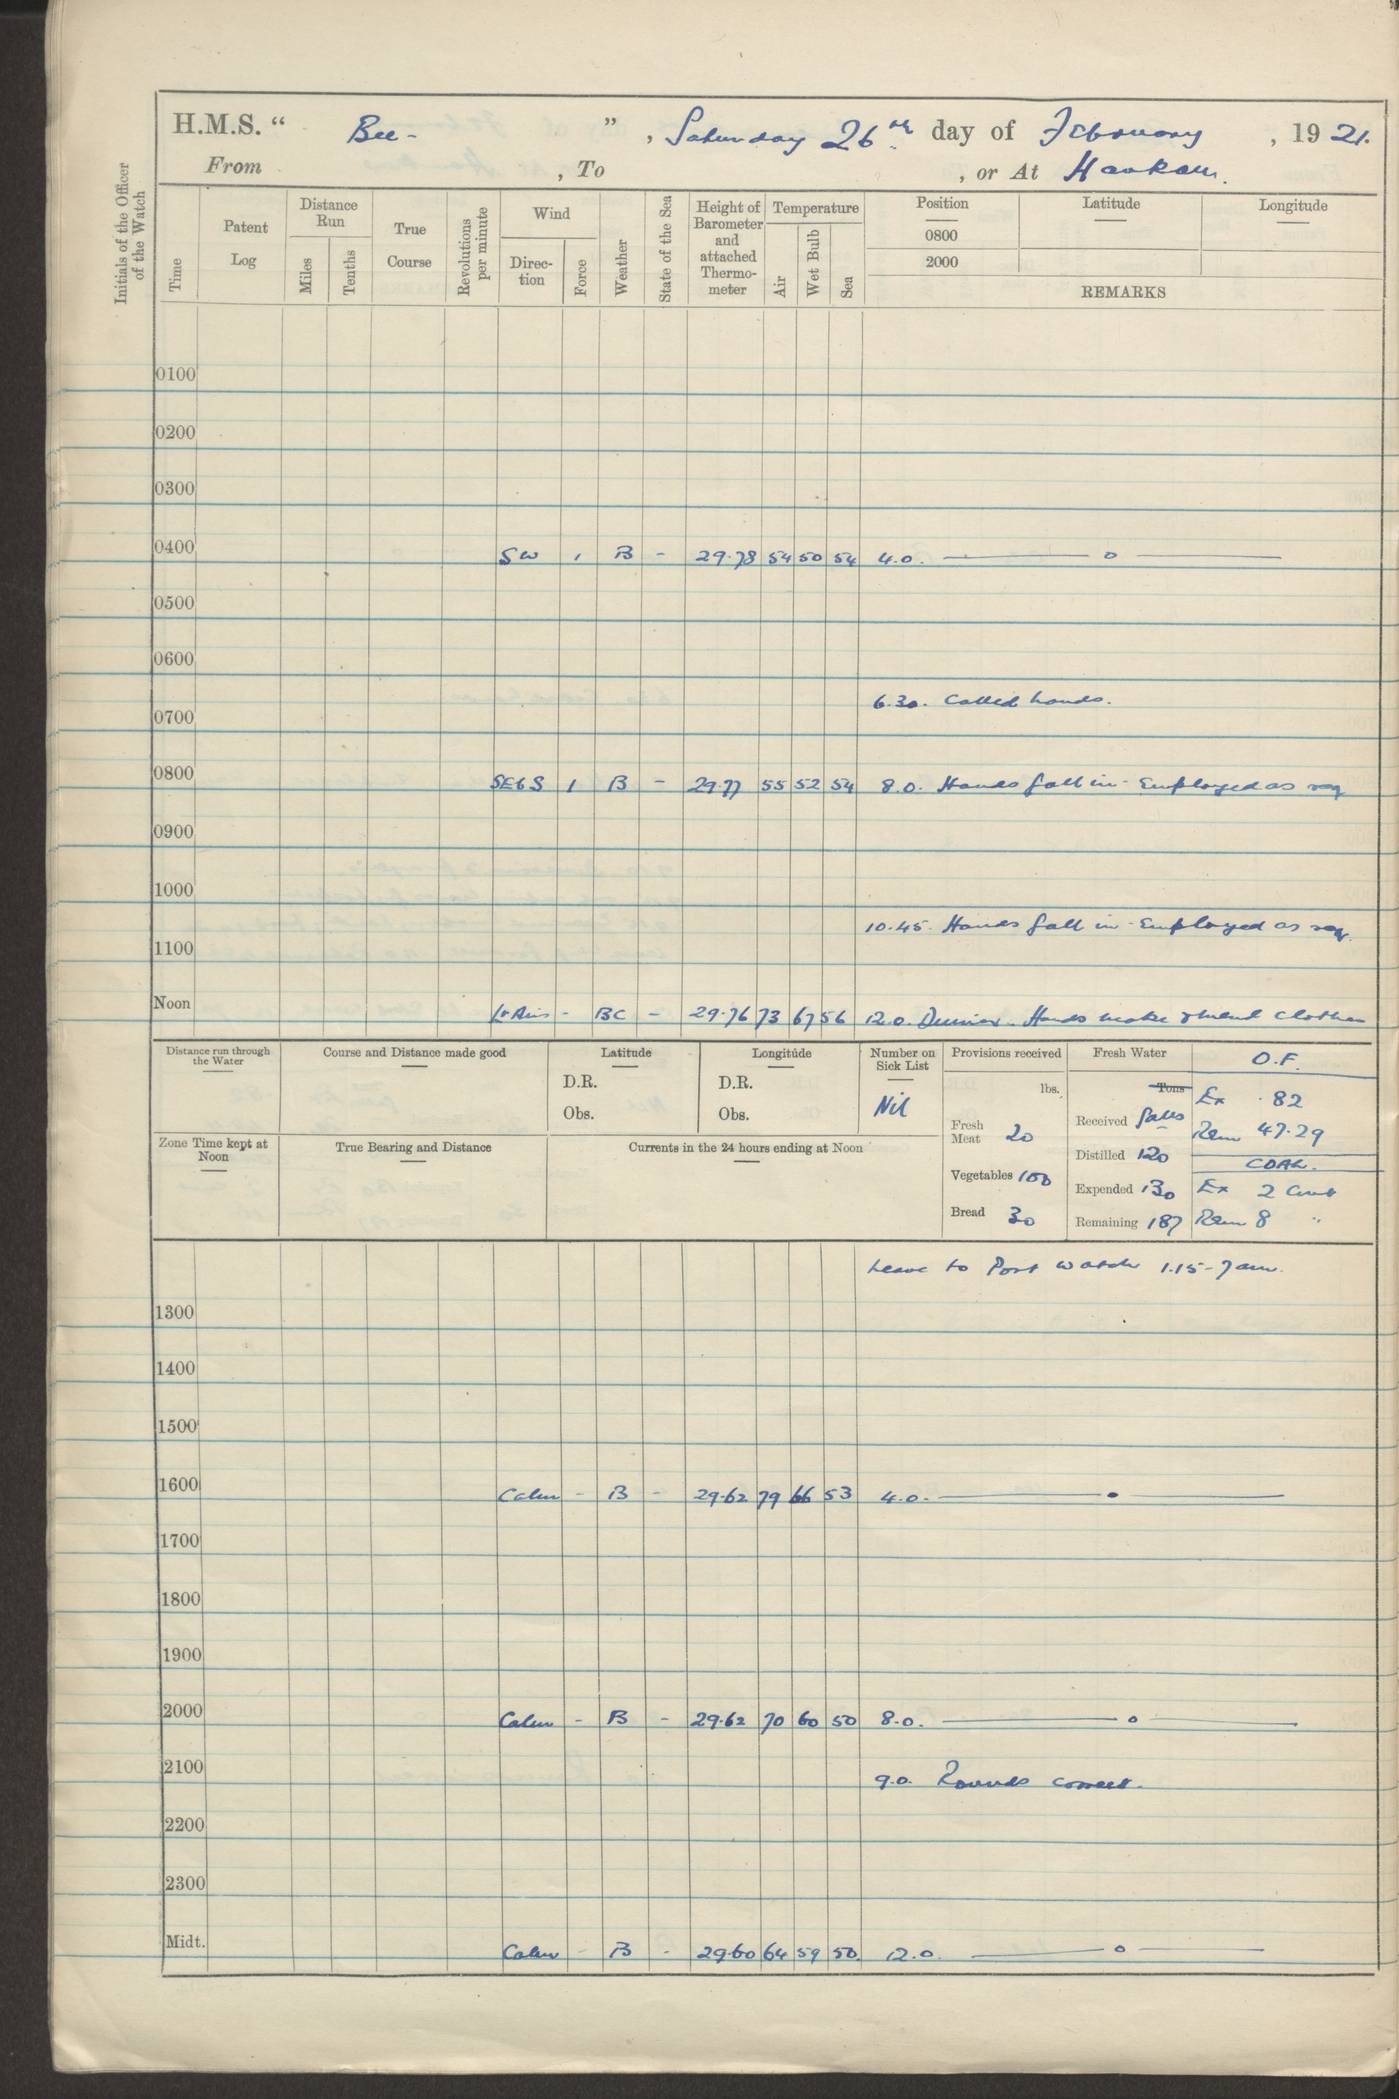 H.M.S. " Bee- " , Saturday 26th day of February , 19 21.
From , To , or At Hankow.
Initials of the Officer of the Watch
Time
Patent Log
Distance Run
Miles
Tenths
True Course
Revolutions per minute
Wind
Direc-tion
Force
Weather
State of the Sea
Height of Barometer and attached Thermo-meter
Temperature
Air
Wet Bulb
Sea
Position
Latitude
Longitude
0800
2000
REMARKS
0100
0200
0300
0400 SW 1 B - 29.78 54 50 54 4.0. — o —
0500
0600
6.30. Called hands.
0700
0800 SEbS 1 B - 29.77 55 52 54 8.0. Hands fall in - Employed as req
0900
1000
10.45. Hands fall in - Employed as req.
1100
Noon Lt Airs - BC - 29.76 73 67 56 12.0. Dinner. Hands make & mend clothes
Distance run through the Water
Course and Distance made good
Latitude
D.R.
Obs.
Longitude
D.R.
Obs.
Number on Sick List
Nil
Provisions received
lbs.
Fresh Meat 20
Vegetables 100
Bread 30
Fresh Water
Tons
Received galls
Distilled 120
Expended 130
Remaining 187
O.F.
Ex .82
Rem 47.29
COAL.
Ex 2 Cwt
Rem 8 "
Zone Time kept at Noon
True Bearing and Distance
Currents in the 24 hours ending at Noon
Leave to Port watch 1.15 - 7 am.
1300
1400
1500
1600 Calm - B - 29.62 79 66 53 4.0. — o —
1700
1800
1900
2000 Calm - B - 29.62 70 60 50 8.0. — o —
2100 9.0. Rounds correct.
2200
2300
Midt. Calm - B - 29.60 64 59 50 12.0. — o —